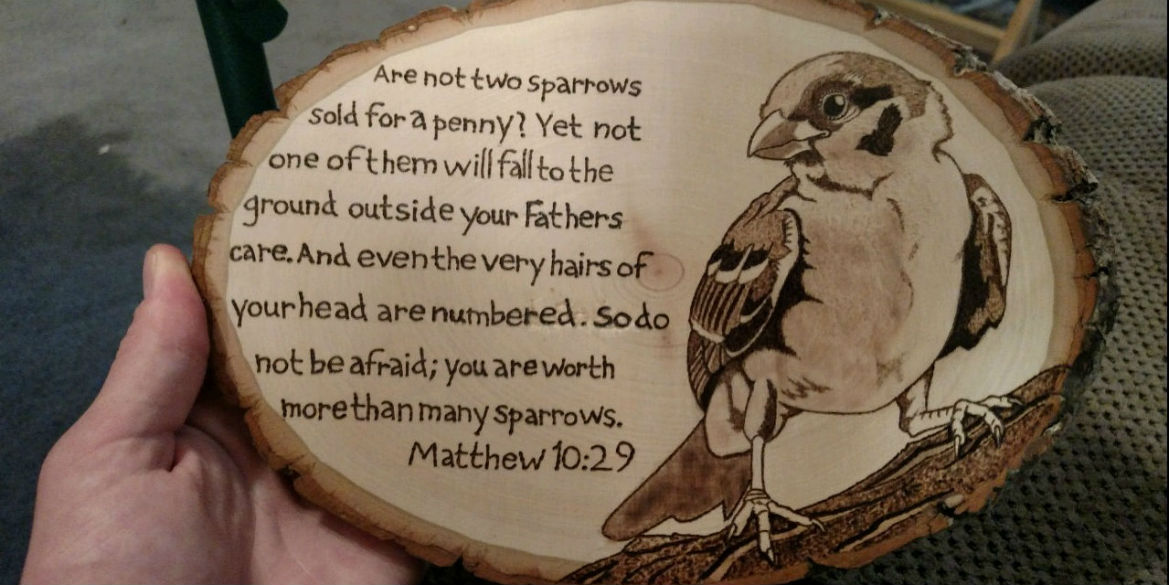 Are not two sparrows
sold for a penny? Yet not
one of them will fall to the
ground outside your Fathers
care. And even the very hairs of
your head are numbered. So do
not be afraid; you are worth
more than many sparrows.
Matthew 10:29